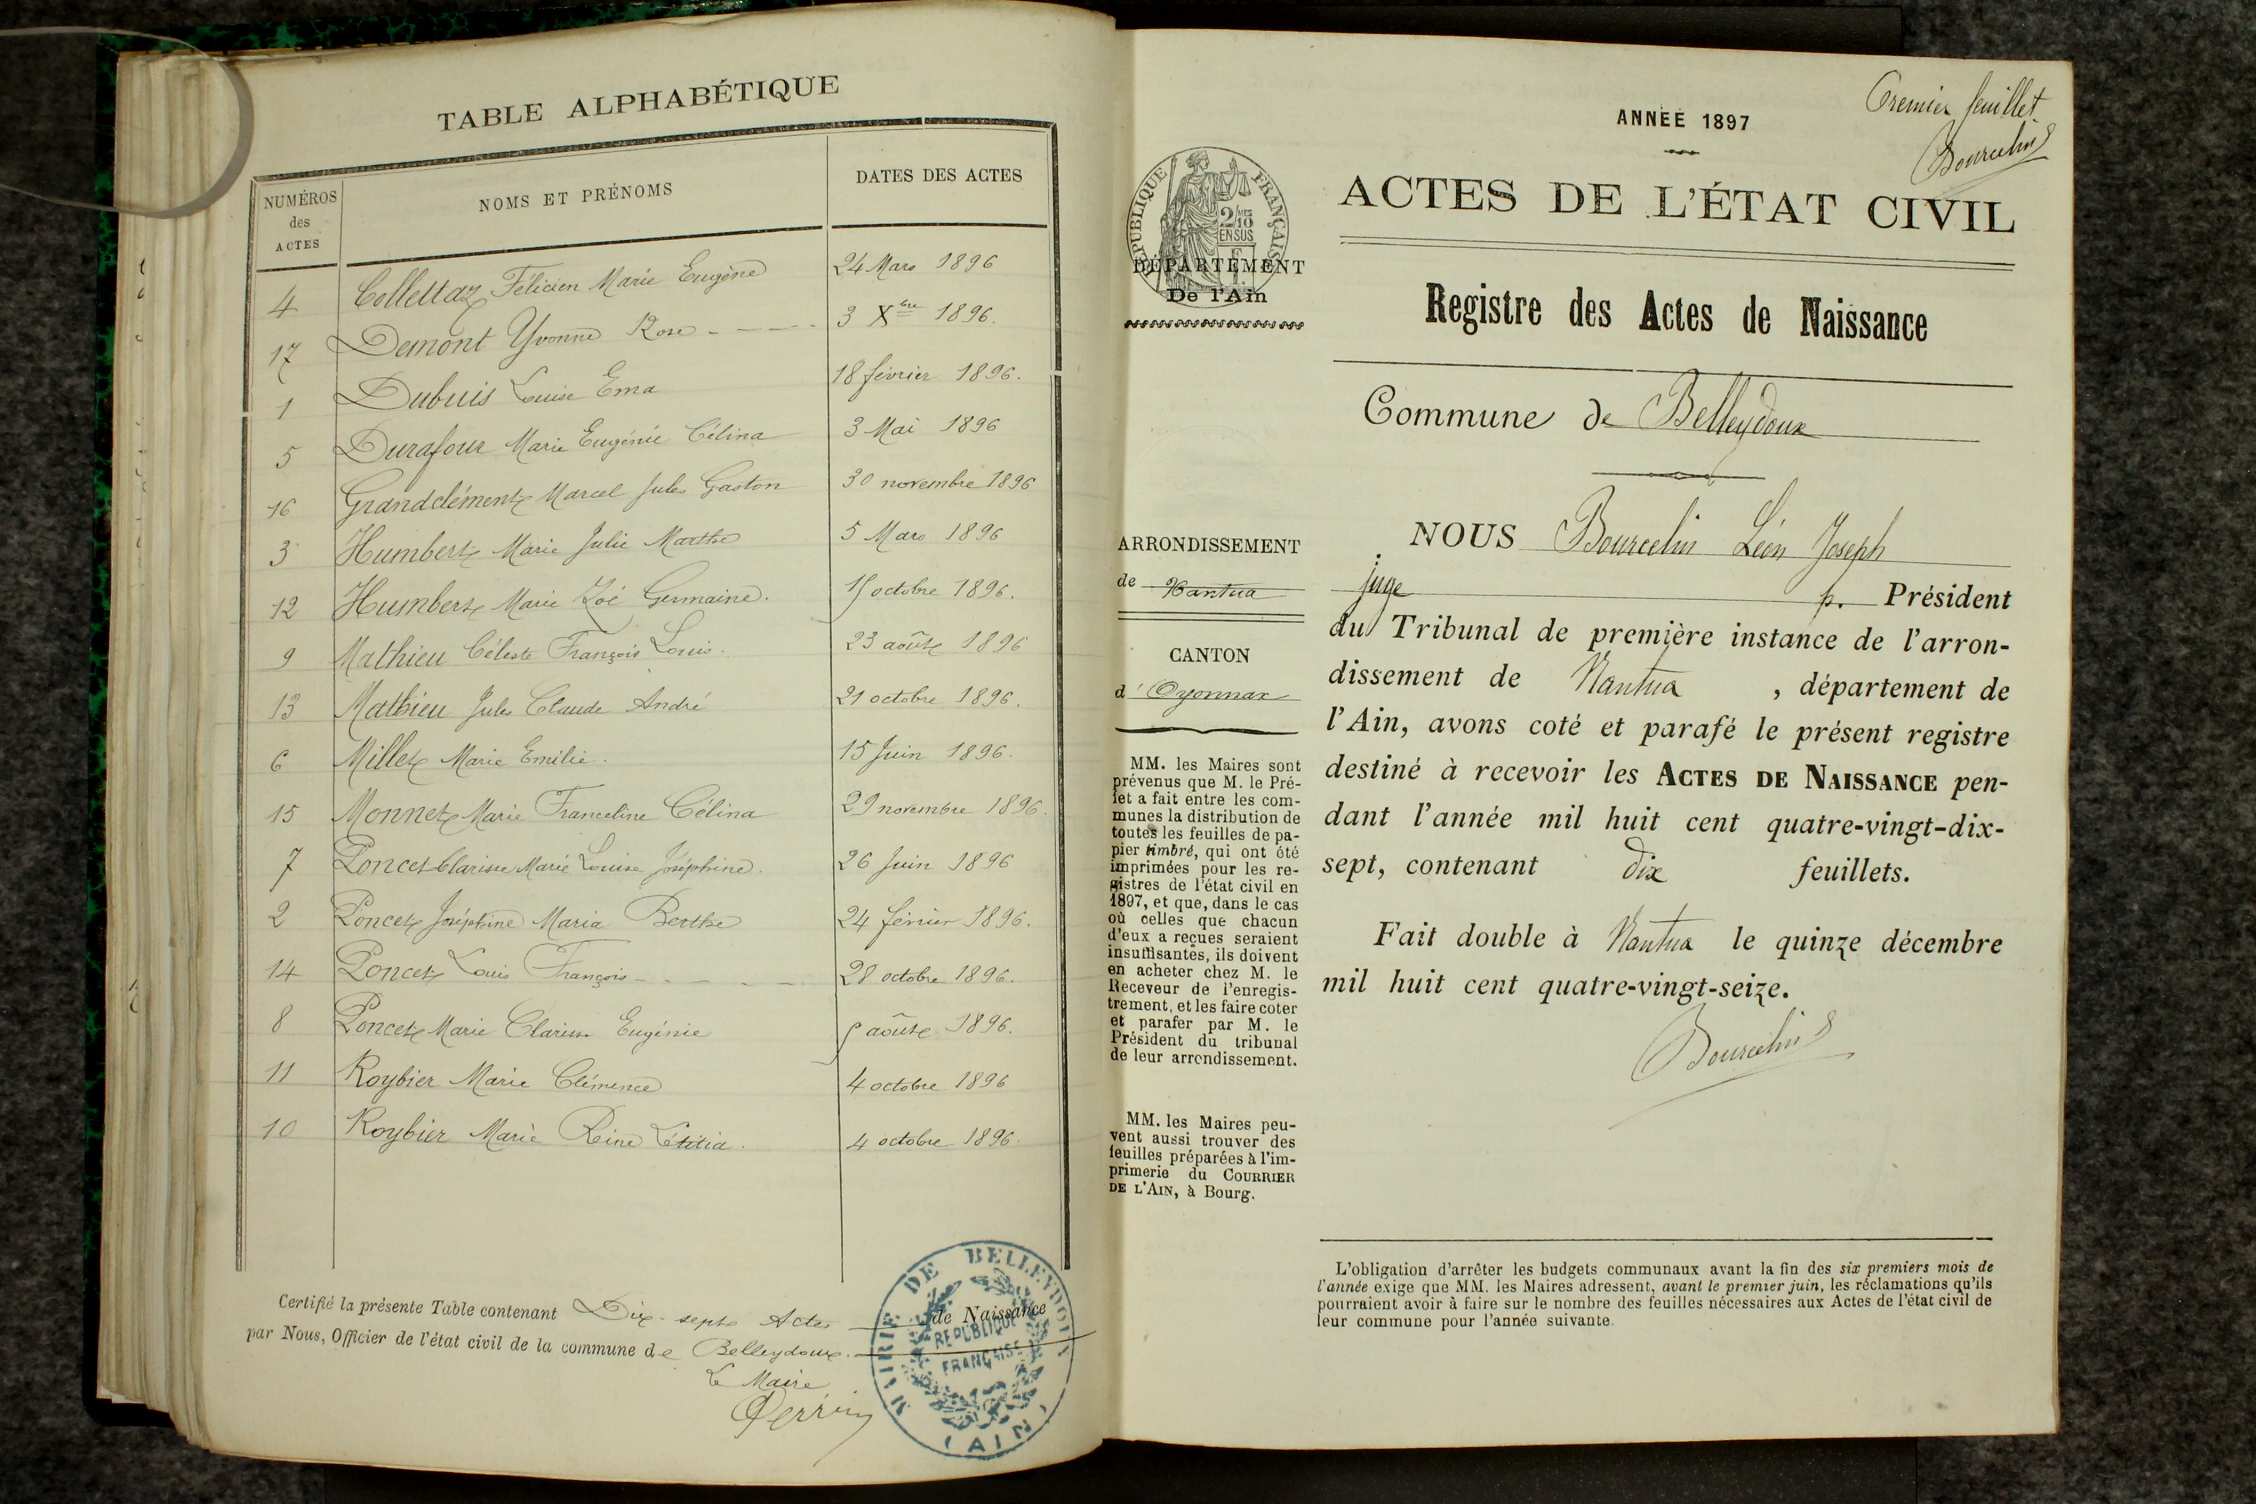 TABLE ALPHABÉTIQUE
NUMÉROS des ACTES
NOMS ET PRÉNOMS
DATES DES ACTES
4 Collettaz Félicien Marie Eugène 24 Mars 1896
17 Demont Yvonne Rose 3 Xbre 1896.
1 Dubuis Louise Ema 18 février 1896.
5 Durafour Marie Eugénie Célina 3 Mai 1896
16 Grandclément Marcel Jules Gaston 30 novembre 1896
3 Humbert Marie Julie Marthe 5 Mars 1896
12 Humbert Marie Zoé Germaine. octobre 1896.
9 Mathieu Céleste François Louis. 23 août 1896
13 Mathieu Jules Claude André 21 octobre 1896.
6 Millet Marie Emilie. 15 Juin 1896.
15 Monnet Marie Franceline Célina 29 novembre 1896.
7 Poncet Clarisse Marie Louise Joséphine. 26 Juin 1896
2 Poncet Joséphine Maria Berthe 24 février 1896.
14 Poncet Louis François 28 octobre 1896.
8 Poncet Marie Clarisse Eugénie août 1896.
11 Roybier Marie Clémence 4 octobre 1896
10 Roybier Marie Reine Létitia. 4 octobre 1896.
Certifié la présente Table contenant Dix-sept Actes de Naissance
par Nous, Officier de l'état civil de la commune de Belleydoux.
Le Maire
Perrin
MAIRIE DE BELLEYDOUX
RÉPUBLIQUE
FRANÇAISE
(AIN)
Premier feuillet
Bourcelin
ANNÉE 1897
RÉPUBLIQUE FRANÇAISE
2/10
EN SUS
ACTES DE L'ÉTAT CIVIL
DÉPARTEMENT
De l'Ain
Registre des Actes de Naissance
Commune de Belleydoux
ARRONDISSEMENT
de Nantua
CANTON
d'Oyonnax
MM. les Maires sont
prévenus que M. le Pré-
fet a fait entre les com-
munes la distribution de
toutes les feuilles de pa-
pier timbré, qui ont été
imprimées pour les re-
gistres de l'état civil en
1897, et que, dans le cas
où celles que chacun
d'eux a reçues seraient
insuffisantes, ils doivent
en acheter chez M. le
Receveur de l'enregis-
trement, et les faire coter
et parafer par M. le
Président du tribunal
de leur arrondissement.
MM. les Maires peu-
vent aussi trouver des
feuilles préparées à l'im-
primerie du COURRIER
DE L'AIN, à Bourg.
NOUS Bourcelin Léon Joseph
juge p. Président
du Tribunal de première instance de l'arron-
dissement de Nantua, département de
l'Ain, avons coté et parafé le présent registre
destiné à recevoir les ACTES DE NAISSANCE pen-
dant l'année mil huit cent quatre-vingt-dix-
sept, contenant dix feuillets.
Fait double à Nantua le quinze décembre
mil huit cent quatre-vingt-seize.
Bourcelin
L'obligation d'arrêter les budgets communaux avant la fin des six premiers mois de
l'année exige que MM. les Maires adressent, avant le premier juin, les réclamations qu'ils
pourraient avoir à faire sur le nombre des feuilles nécessaires aux Actes de l'état civil de
leur commune pour l'année suivante.